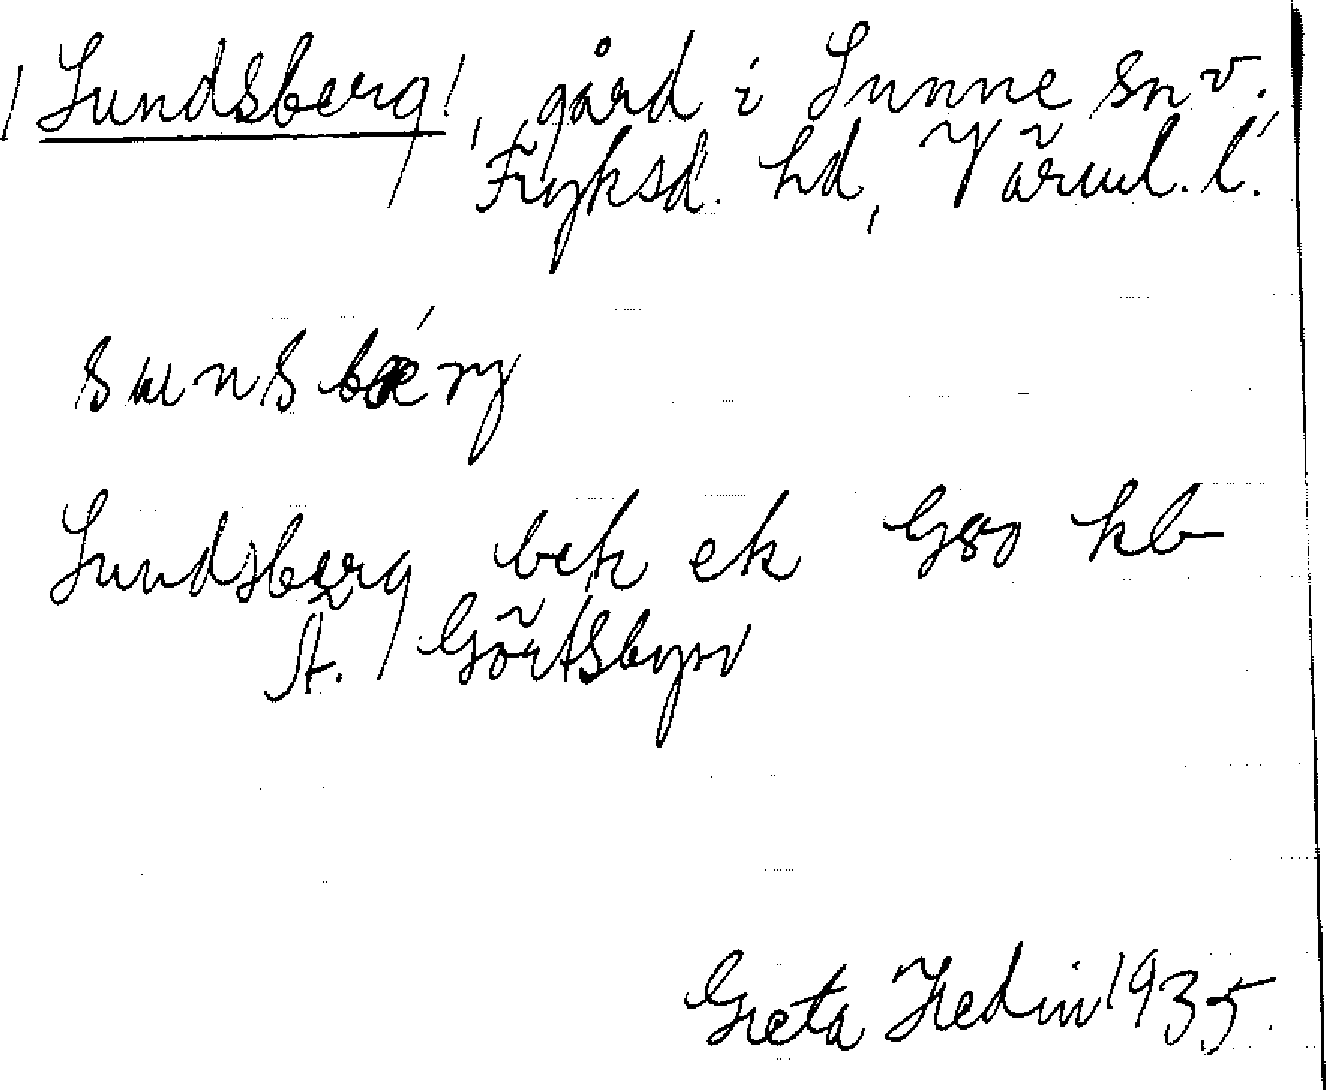 /Sundsberg/, gård i Sunne sn v.
Fryksd. hd, Värml. l.
sunsbærg
Sundsberg bek ek Gso kb
Ä. Görtsbyn
Greta Hedin 1935.